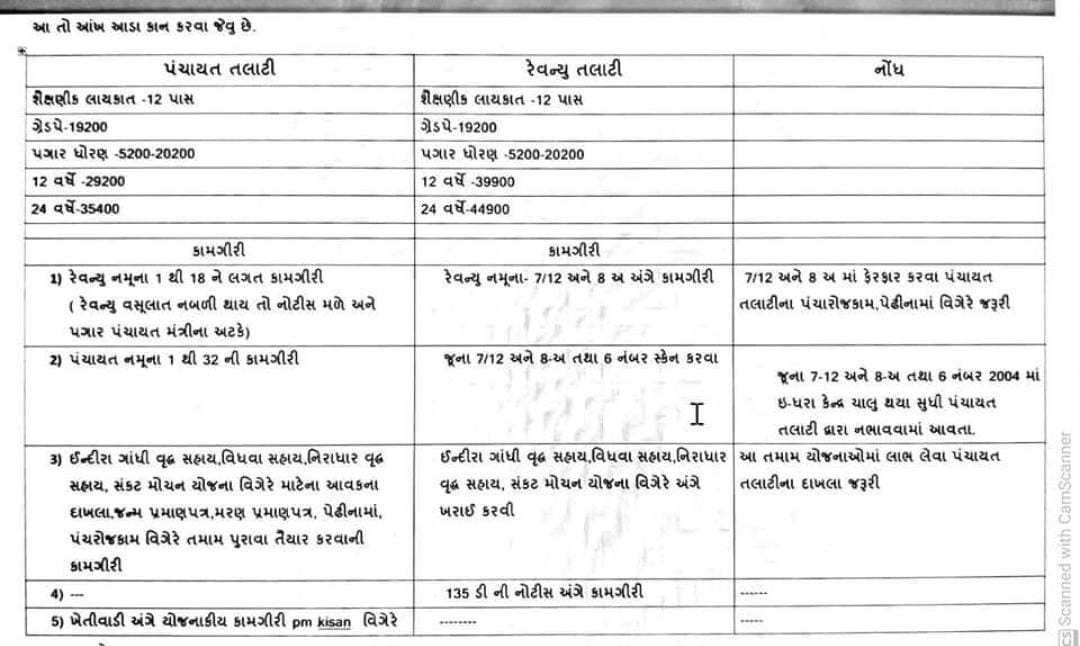 આ તો આંખ આડા કાન કરવા જેવુ છે.
પંચાયત તલાટી
રેવન્યુ તલાટી
નોંધ
શૈક્ષણીક લાયકાત -12 પાસ
શૈક્ષણીક લાયકાત -12 પાસ
ગ્રેડપે-19200
ગ્રેડપે-19200
પગાર ધોરણ -5200-20200
પગાર ધોરણ -5200-20200
12 વર્ષે -29200
12 વર્ષે -39900
24 વર્ષે-35400
24 વર્ષે-44900
કામગીરી
કામગીરી
1) રેવન્યુ નમૂના 1 થી 18 ને લગત કામગીરી
( રેવન્યુ વસૂલાત નબળી થાય તો નોટીસ મળે અને
પગાર પંચાયત મંત્રીના અટકે)
રેવન્યુ નમૂના- 7/12 અને 8 અ અંગે કામગીરી
7/12 અને 8 અ માં ફેરફાર કરવા પંચાયત
તલાટીના પંચારોજકામ,પેઢીનામાં વિગેરે જરૂરી
2) પંચાયત નમૂના 1 થી 32 ની કામગીરી
જૂના 7/12 અને 8-અ તથા 6 નંબર સ્કેન કરવા
જૂના 7-12 અને 8-અ તથા 6 નંબર 2004 માં
ઇ-ધરા કેન્દ્ર ચાલુ થયા સુધી પંચાયત
તલાટી દ્વારા નભાવવામાં આવતા.
3) ઈન્દીરા ગાંધી વૃદ્ધ સહાય,વિધવા સહાય,નિરાધાર વૃદ્ધ
સહાય, સંકટ મોચન યોજના વિગેરે માટેના આવકના
દાખલા,જન્મ પ્રમાણપત્ર,મરણ પ્રમાણપત્ર, પેઢીનામાં,
પંચરોજકામ વિગેરે તમામ પુરાવા તૈયાર કરવાની
કામગીરી
ઈન્દીરા ગાંધી વૃદ્ધ સહાય,વિધવા સહાય,નિરાધાર
વૃદ્ધ સહાય, સંકટ મોચન યોજના વિગેરે અંગે
ખરાઈ કરવી
આ તમામ યોજનાઓમાં લાભ લેવા પંચાયત
તલાટીના દાખલા જરૂરી
4) ---
135 ડી ની નોટીસ અંગે કામગીરી
------
5) ખેતીવાડી અંગે યોજનાકીય કામગીરી pm kisan વિગેરે
--------
-----
CS Scanned with CamScanner